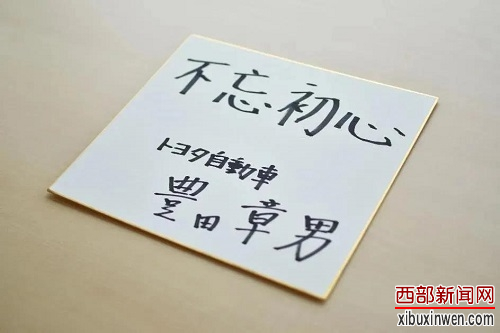 不忘初心
トヨタ自動車
豊田章男
西部新闻网
xibuxinwen.com